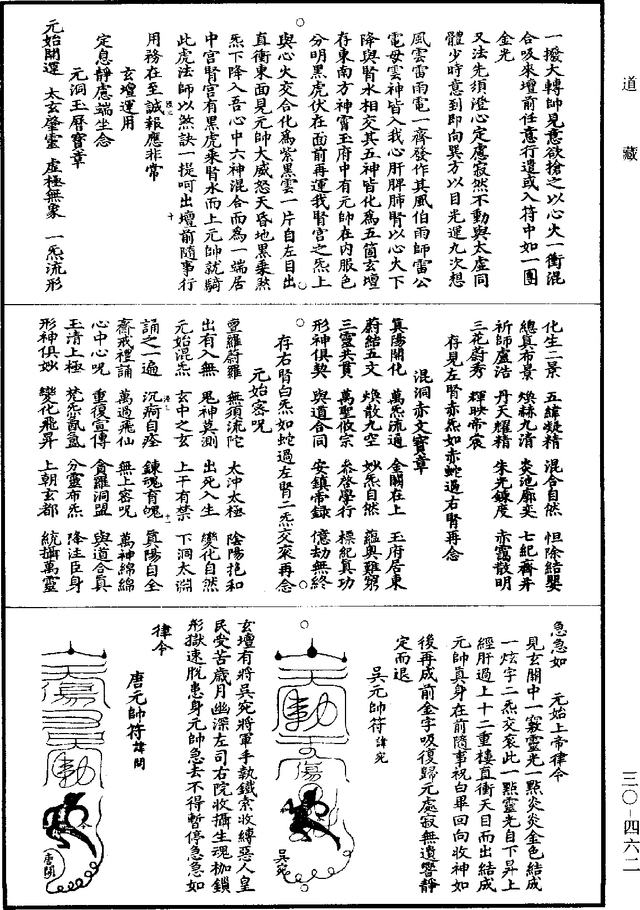 道藏
一撥大轉師見意欲搶之以心火一衝混
合吸來壇前任意行遣或入符中如一團
金光
又法先須澄心定慮寂然不動與太虛同
體少時意到即向巽方以目光運九次想
風雲雷雨電一齊發作其風伯雨師雷公
電母雲神皆入我心肝脾肺腎以心火下
降與腎水相交其五神皆化為五箇玄壇
存東南方神霄玉府中有元帥在內服色
分明黑虎伏在面前再運我腎宮之炁上
與心火交合化為紫黑雲一片自左目出
直衝東面見元帥大威怒天昏地黑乘煞
炁下降入吾心中六神混合而為一端居
中宮腎宮有黑虎乘腎水而上元帥就騎
此虎法師以煞訣一提呵出壇前隨事行
用務在至誠報應非常
玄壇運用
定息靜慮端坐念
元洞玉曆寶章
元始開運　太玄肇靈　虛極無象　一炁流形
化生二景　五緯凝精　混合自然　怛除結嬰
總真布景　煥赫九清　炎池廓奕　七紀齊并
祈師盧浩　丹天耀精　朱光鍊度　赤靄散明
三花蔚秀　輝映帝宸
存見左腎赤炁如赤蛇過右腎再念
混洞赤文寶章
箕陽開化　萬炁流通　金闕在上　玉府居東
蔚結五文　煥散九空　妙炁自然　蘊奧難窮
三靈共貫　萬聖攸宗　叅啓學行　標紀真功
形神俱契　與道合同　安鎮帝錄　億劫無終
存右腎白炁如蛇過左腎二炁交衮再念
元始密呪
亶羅蔚羅　無須流陀　太沖太極　陰陽抱和
出有入無　鬼神莫測　出死入生　變化自然
元始混炁　玄中之玄　上干有禁　下洞太淵
誦之一遍　沉痾自痊　鍊魂育魄　真陽自全
齋戒禮誦　萬過飛仙　無上密呪　萬神綿綿
心中心呪　重復宣傳　貪羅洞盟　與道合真
玉清上極　梵炁氤氳　分靈布炁　降注臣身
形神俱妙　變化飛昇　上朝玄都　統攝萬靈
急急如　元始上帝律令
見玄關中一竅靈光一點炎炎金色結成
一炫字二炁交衮此一點靈光自下昇上
經肝過上十二重樓直衝天目而出結成
元帥真身在前隨事祝白畢回向收神如
後再成前金字吸復歸元處寂無遺響靜
定而退
吳元帥符諱宛
吳宛
玄壇有將吳宛將軍手執鐵索收縛惡人皇
民受苦歲月幽深左司右院收攝生魂枷鎖
形獄速脫患身元帥急去不得暫停急急如
律令
唐元帥符諱開
三〇－四六二